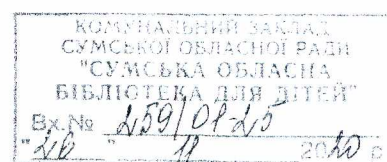 КОМУНАЛЬНИЙ ЗАКЛАД
СУМСЬКОЇ ОБЛАСНОЇ РАДИ
"СУМСЬКА ОБЛАСНА
БІБЛІОТЕКА ДЛЯ ДІТЕЙ"
Вх.№ 259/01-25
"26" 11 2020 р